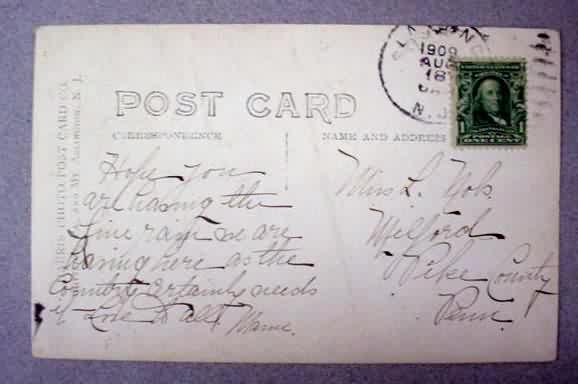 1909
AUG
18
N.J.
POST CARD
CORRESPONDENCE
NAME AND ADDRESS
PHOTO POST CARD CO.
AND MT. ARLINGTON, N. J.
1
ONE CENT
Hope you
are having the
fine rain we are
having here as the
Country certainly needs
it Love to all Mame.
Miss L. Nols.
Milford
Pike County
Penn.